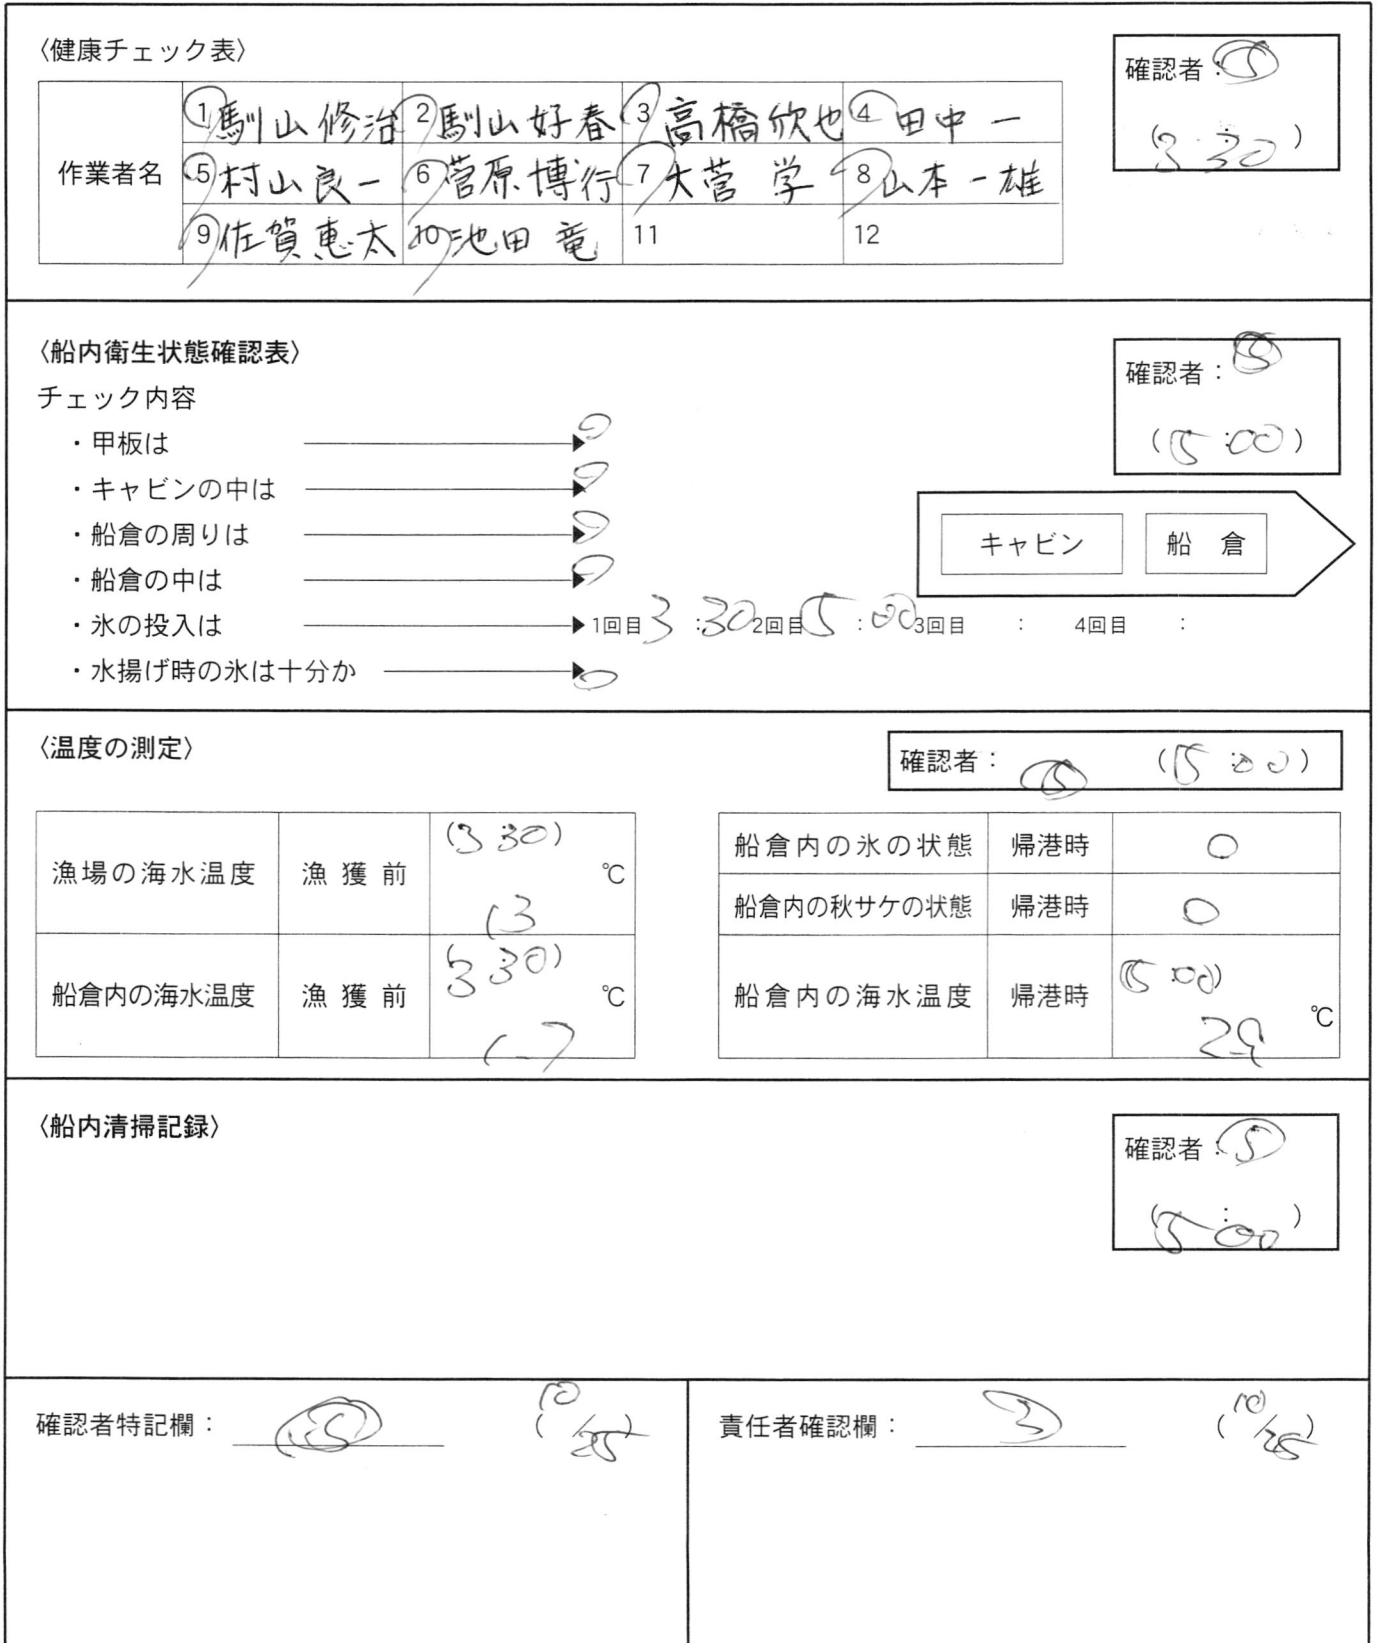 〈健康チェック表〉
確認者：⑤
(3:30)
作業者名
1 馴山修治 2 馴山好春 3 高橋欣也 4 田中一
5 村山良一 6 菅原博行 7 大菅 学 8 山本一雄
9 佐賀恵太 10 池田 竜 11 12
〈船内衛生状態確認表〉
確認者：⑤
(5:00)
チェック内容
・甲板は ○
・キャビンの中は ○
・船倉の周りは ○
・船倉の中は ○
キャビン 船 倉
・氷の投入は 1回目 3:30 2回目 5:00 3回目 : 4回目 :
・水揚げ時の氷は十分か ○
〈温度の測定〉
確認者：⑤ (5:00)
漁場の海水温度 漁獲前 (3:30) 13 ℃
船倉内の海水温度 漁獲前 (3:30) ℃
船倉内の氷の状態 帰港時 ○
船倉内の秋サケの状態 帰港時 ○
船倉内の海水温度 帰港時 (5:00) ℃
〈船内清掃記録〉
確認者：⑤
(5:00)
確認者特記欄：⑤ (10/25)
責任者確認欄：③ (10/25)